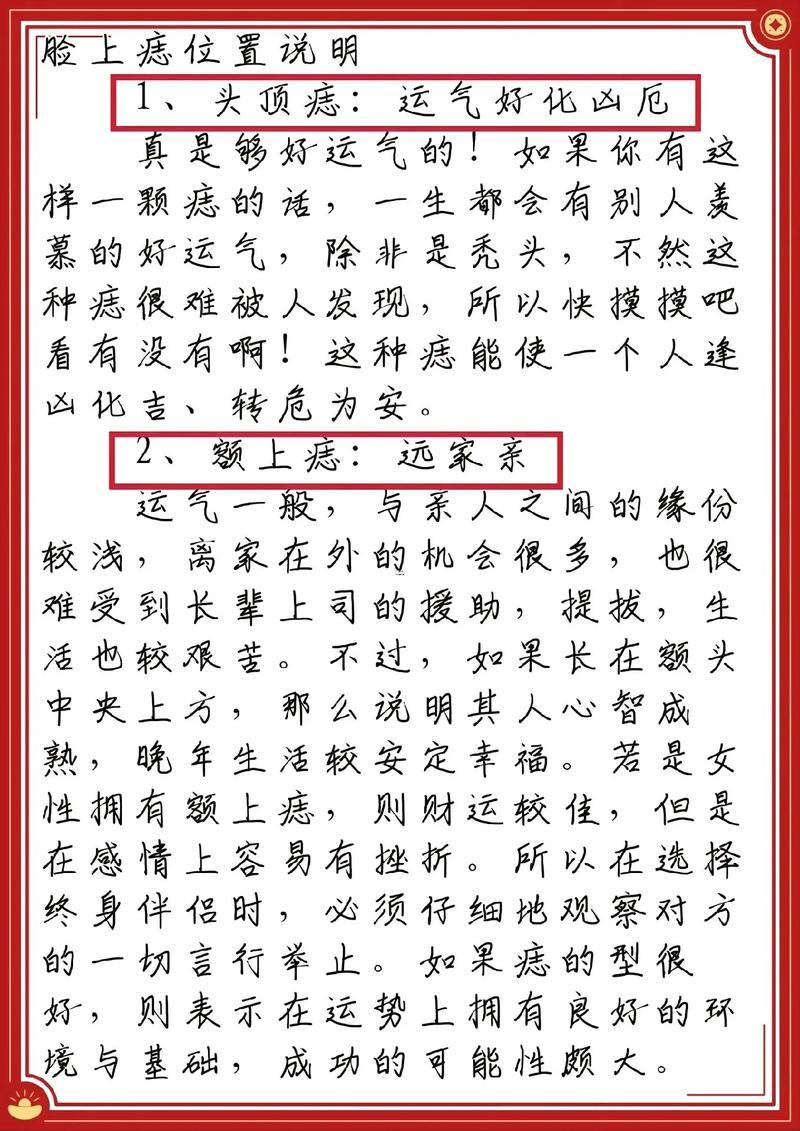 脸上痣位置说明
1、头顶痣：运气好化凶厄
真是够好运气的！如果你有这
样一颗痣的话，一生都会有别人羡
慕的好运气，除非是秃头，不然这
种痣很难被人发现，所以快摸摸吧
看有没有啊！这种痣能使一个人逢
凶化吉、转危为安。
2、额上痣：远家亲
运气一般，与亲人之间的缘份
较浅，离家在外的机会很多，也很
难受到长辈上司的援助，提拔，生
活也较艰苦。不过，如果长在额头
中央上方，那么说明其人心智成
熟，晚年生活较安定幸福。若是女
性拥有额上痣，则财运较佳，但是
在感情上容易有挫折。所以在选择
终身伴侣时，必须仔细地观察对方
的一切言行举止。如果痣的型很
好，则表示在运势上拥有良好的环
境与基础，成功的可能性颇大。